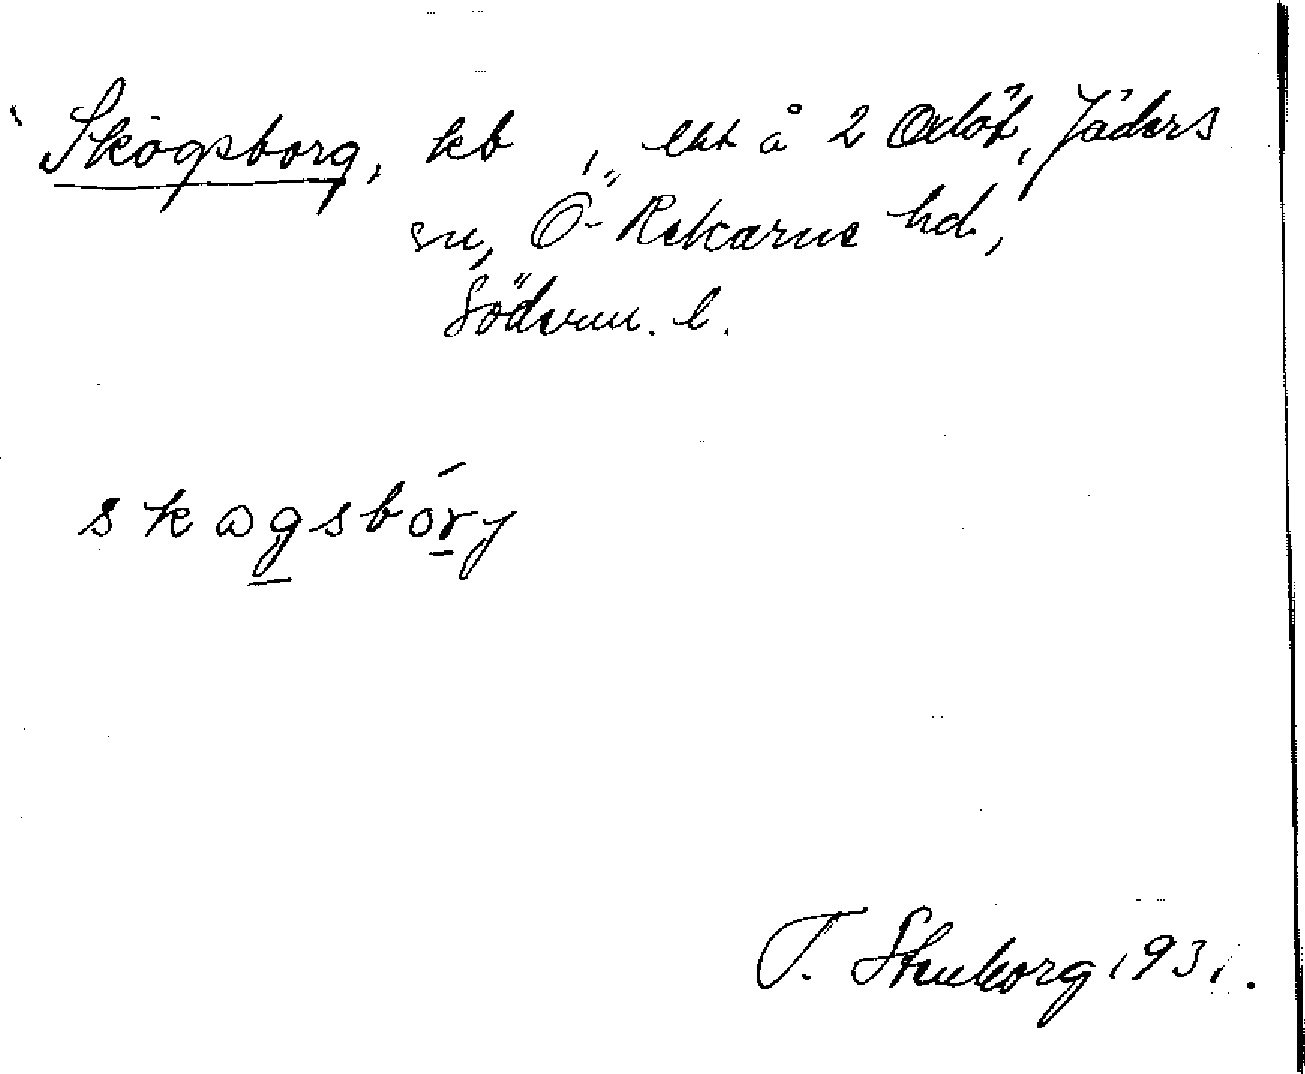 Skogsborg, kb , ekt å 2 Oxlöt, Jäders
sn, Ö-Rekarne hd,
Söderm. l.
skagsbórj
T. Stenborg 1931.